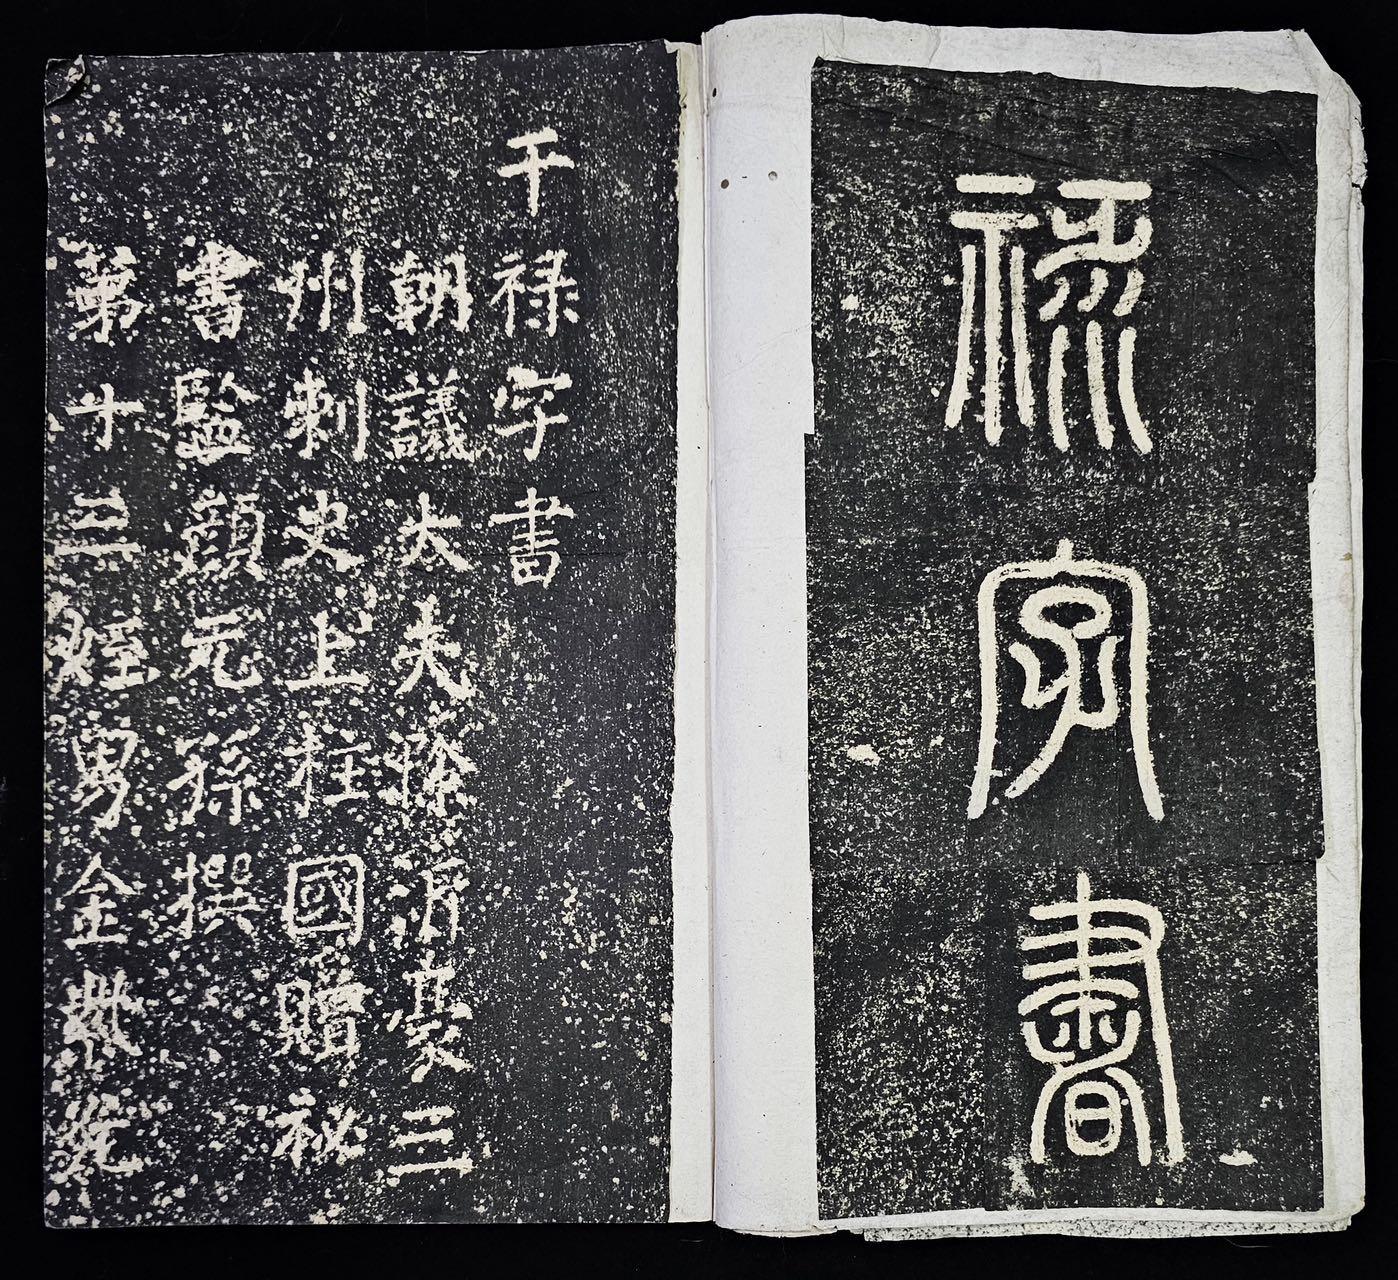 祿字書
干祿字書
朝議大夫除滑豪三
州刺史上柱國贈祕
書監顏元孫撰
第十三姪男金紫光